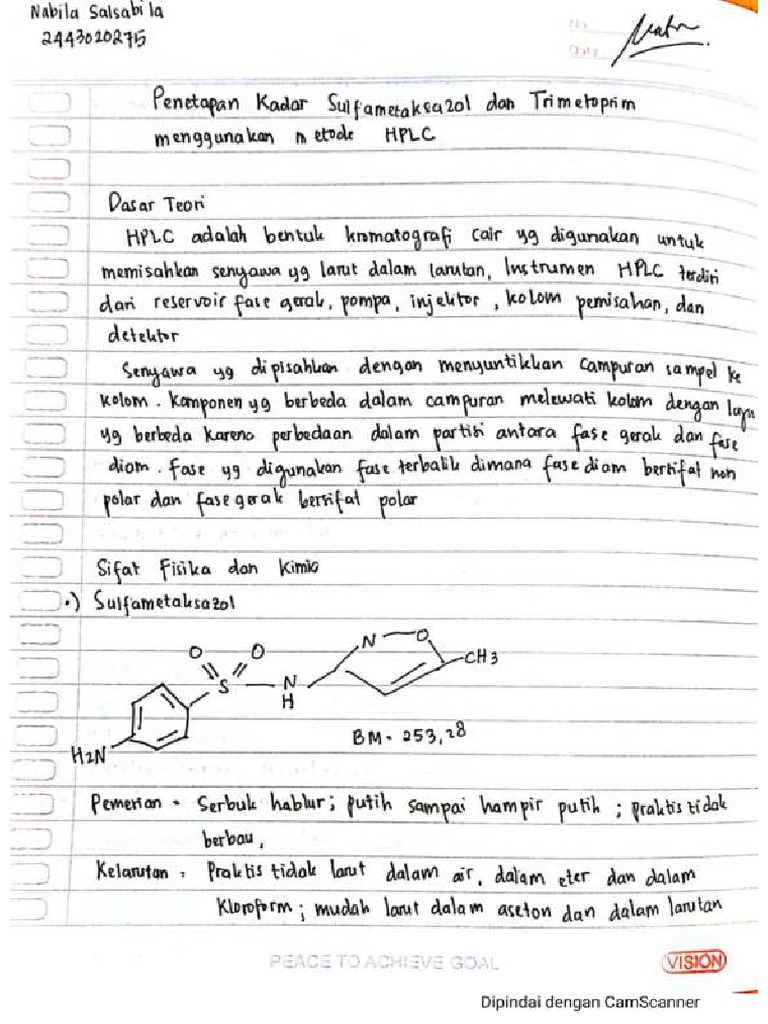 Nabila Salsabila
2443020275
No
Date
Penetapan Kadar Sulfametaksazol dan Trimetoprim
menggunakan metode HPLC
Dasar Teori
HPLC adalah bentuk kromatografi cair yg digunakan untuk
memisahkan senyawa yg larut dalam larutan, Instrumen HPLC terdiri
dari reservoir fase gerak, pompa, injektor, kolom pemisahan, dan
detektor
Senyawa yg dipisahkan dengan menyuntikkan campuran sampel ke
kolom. Komponen yg berbeda dalam campuran melewati kolom dengan laju
yg berbeda karena perbedaan dalam partisi antara fase gerak dan fase
diam. Fase yg digunakan fase terbalik dimana fase diam bersifat non
polar dan fase gerak bersifat polar
Sifat Fisika dan Kimia
•) Sulfametaksazol
O O N O
S N CH3
H
H2N
BM = 253,28
Pemerian = Serbuk hablur; putih sampai hampir putih; praktis tidak
berbau,
Kelarutan = Praktis tidak larut dalam air, dalam eter dan dalam
Kloroform; mudah larut dalam aseton dan dalam larutan
PEACE TO ACHIEVE GOAL
VISION
Dipindai dengan CamScanner